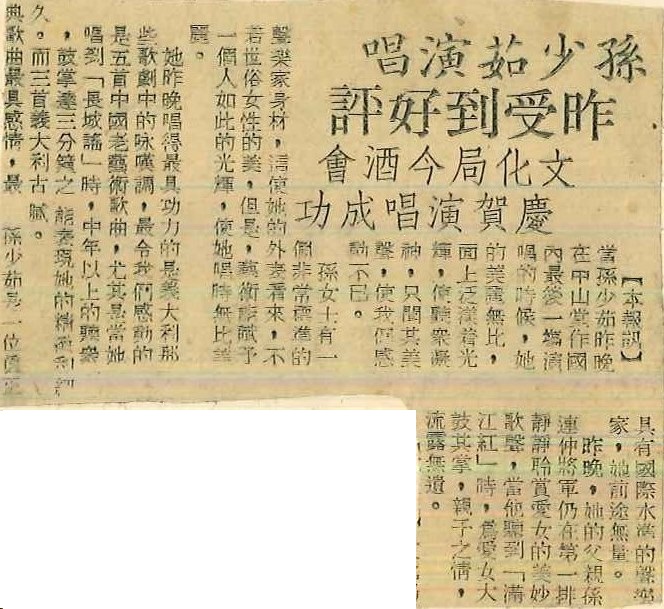 孫少茹演唱
昨受到好評
文化局今酒會
慶賀演唱成功
【本報訊】
當孫少茹昨晚
在中山堂作國
內最後一場演
唱的時候，她
的美麗無比，
面上泛漾着光
輝，使聽衆凝
神，只聞其美
聲，使我們感
動不已。
孫女士有一
個非常標準的
聲樂家身材，這使她的外表看來，不
若世俗女性的美，但是，藝術能賦予
一個人如此的光輝，使她唱時無比美
麗。
她昨晚唱得最具功力的是義大利那
些歌劇中的咏嘆調，最令我們感動的
是五首中國老藝術歌曲，尤其是當她
唱到「長城謠」時，中年以上的聽衆
，鼓掌達三分鐘之
久。而三首義大利古
典歌曲最具感情，最
能表現她的精密和細
膩。
孫少茹是一位眞正
具有國際水準的聲樂
家，她前途無量。
昨晚，她的父親孫
連仲將軍仍在第一排
靜靜聆賞愛女的美妙
歌聲，當他聽到「滿
江紅」時，爲愛女大
鼓其掌，親子之情，
流露無遺。